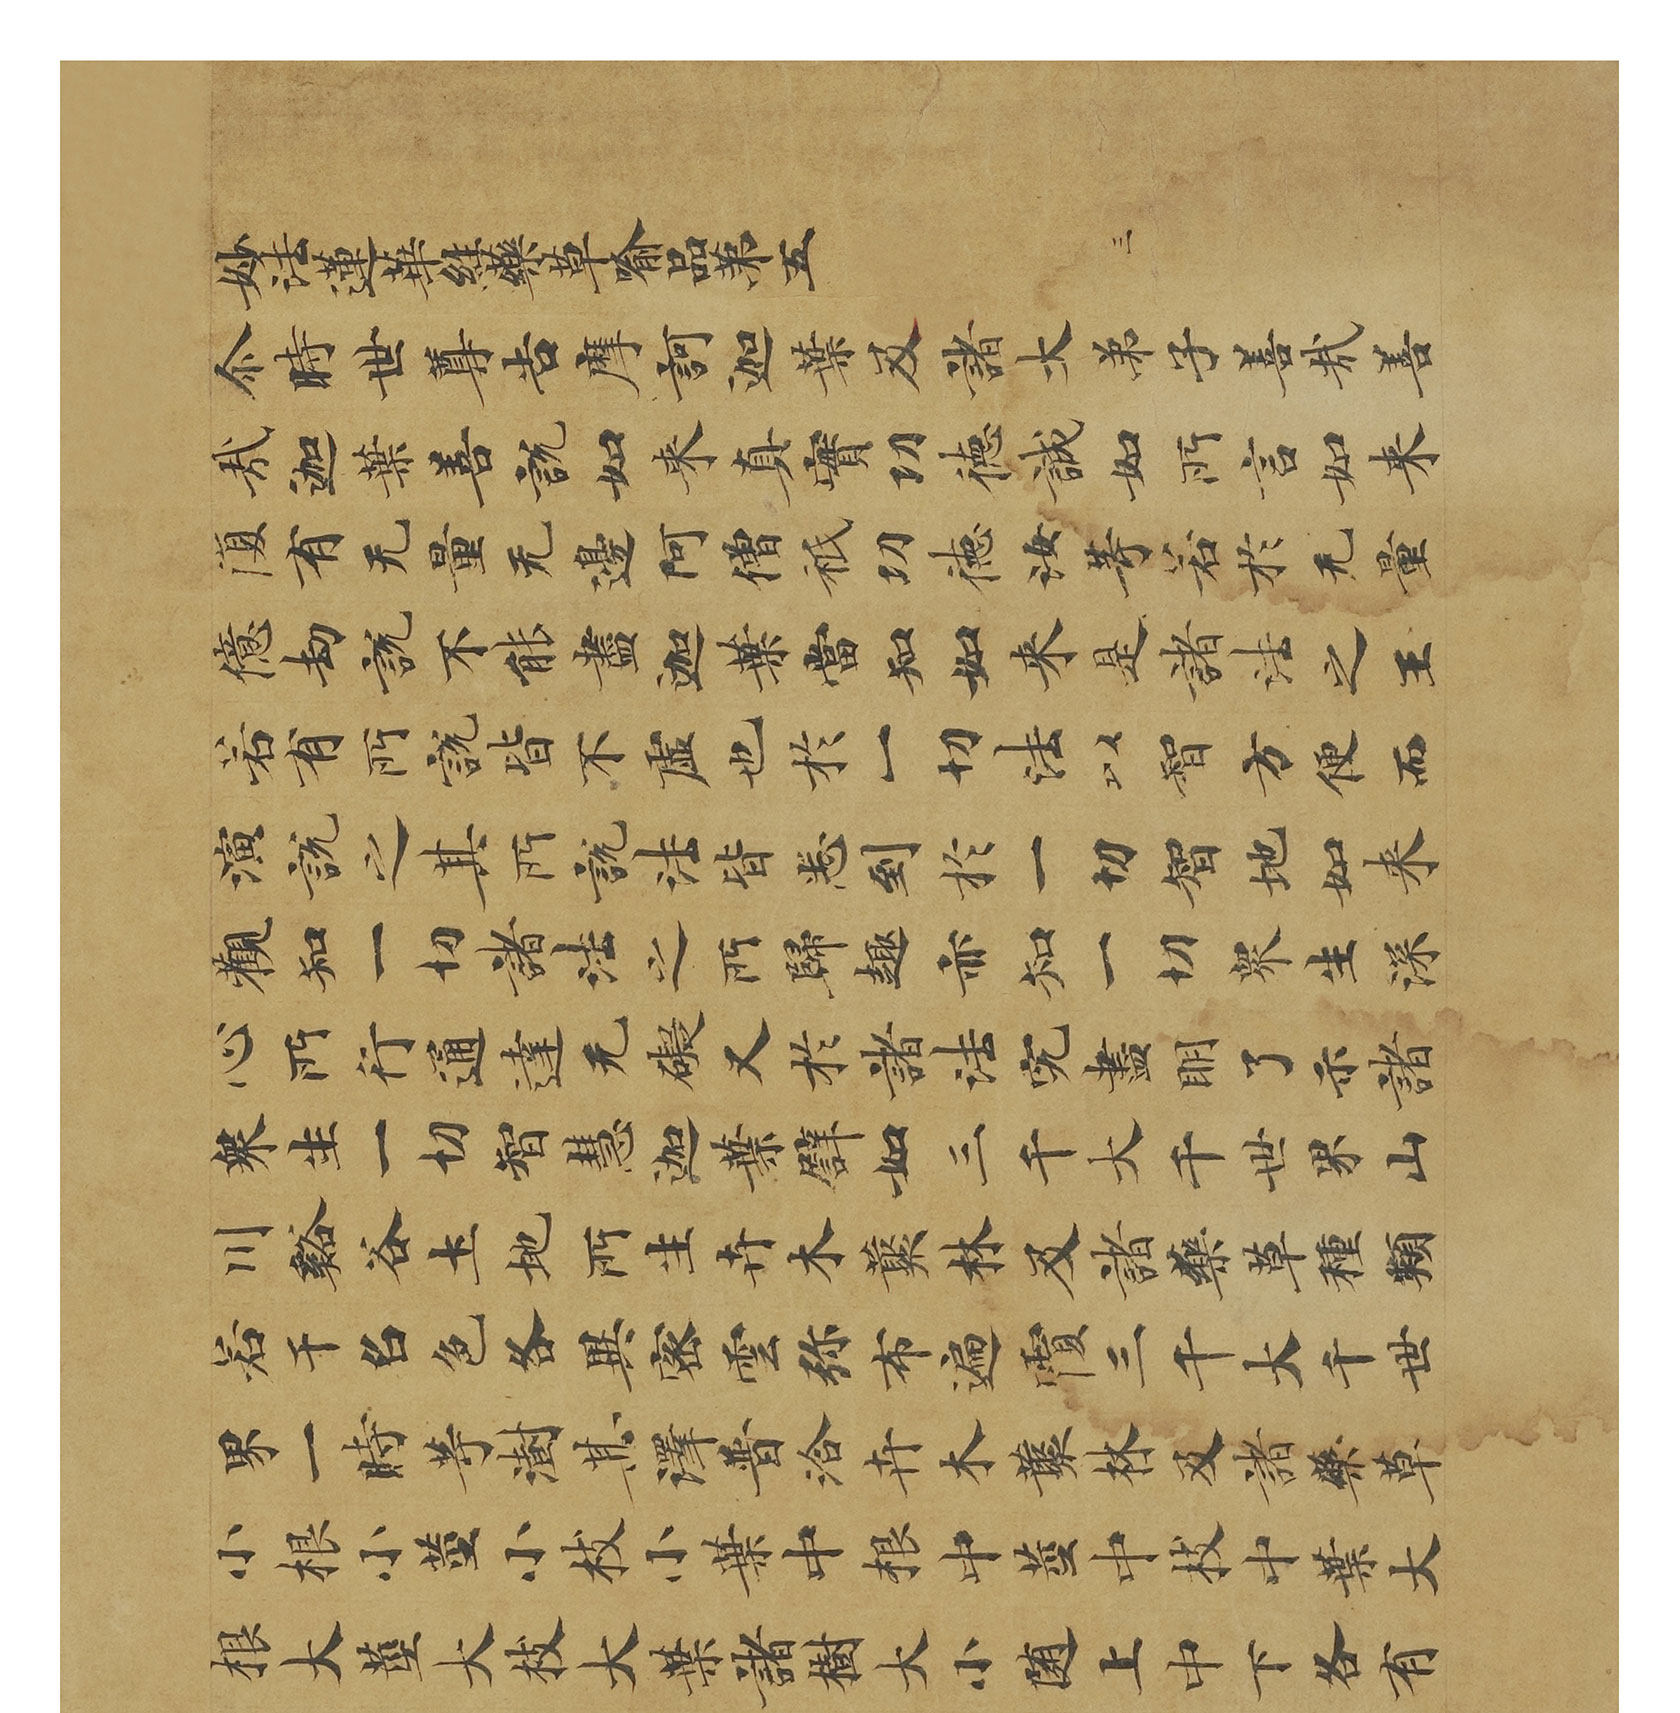 妙法蓮華經藥草喻品第五
三
尒時世尊告摩訶迦葉及諸大弟子善哉善
哉迦葉善說如来真實功德誠如所言如来
復有无量无邊阿僧祇功德汝等若於无量
億劫說不能盡迦葉當知如来是諸法之王
若有所說皆不虛也於一切法以智方便而
演說之其所說法皆悉到於一切智地如来
觀知一切諸法之所歸趣亦知一切衆生深
心所行通達无礙又於諸法究盡明了示諸
衆生一切智慧迦葉譬如三千大千世界山
川谿谷土地所生卉木藂林及諸藥草種類
若干名色各異密雲弥布遍覆三千大千世
界一時等澍其澤普洽卉木藂林及諸藥草
小根小莖小枝小葉中根中莖中枝中葉大
根大莖大枝大葉諸樹大小随上中下各有